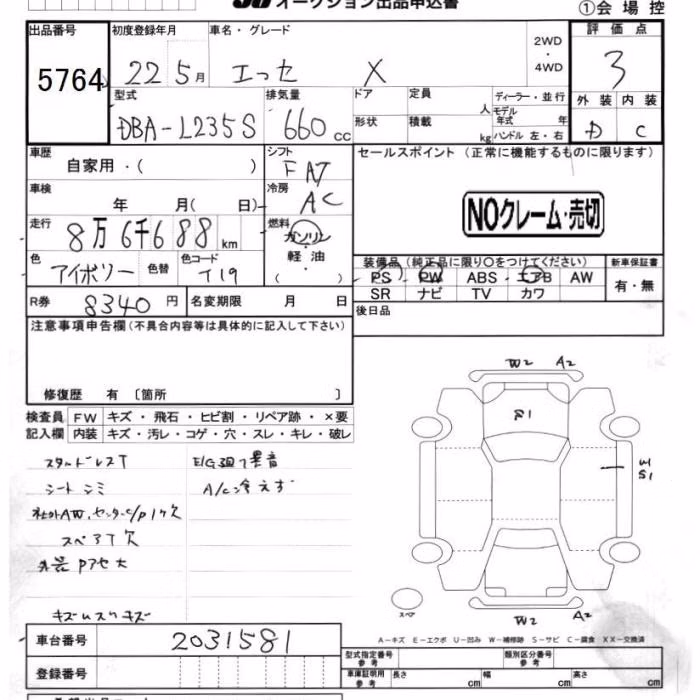 オークション出品申込書
①会場控
出品番号 5764
初度登録年月 22 5月
車名・グレード エッセ X
2WD・4WD
評価点 3
外装 D 内装 C
型式 DBA-L235S
排気量 660 cc
ドア 形状
定員 人
積載 kg
ディーラー・並行
モデル年式 年
ハンドル 左・右
車歴 自家用・( )
シフト FAT
セールスポイント (正常に機能するものに限ります)
NOクレーム・売切
車検 年 月( 日)
冷房 AC
走行 8万6千688km
燃料 ガソリン・軽油 ( )
色 アイボリー 色替 色コード T19
装備品 (純正品に限り○をつけてください)
PS PW ABS エアB AW
SR ナビ TV カワ
新車保証書 有・無
R券 8340円 名変期限 月 日
後日品
注意事項申告欄(不具合内容等は具体的に記入して下さい)
修復歴 有 〔箇所 〕
検査員 FW キズ・飛石・ヒビ割・リペア跡・×要
記入欄 内装 キズ・汚レ・コゲ・穴・スレ・キレ・破レ
W2 A2
S1
W S1
スタッドレスT
シートシミ
社外AW.センターC/Pハ欠
スペアT欠
E/G廻り異音
A/C冷えず
キズハスリキズ
スペア
W2 A2
A-キズ E-エクボ U-凹み W-補修跡 S-サビ C-腐食 XX-交換済
車台番号 2031581
登録番号
型式指定番号 参考
類別区分番号 参考
車庫証明用 参考 長さ cm 幅 cm 高さ cm